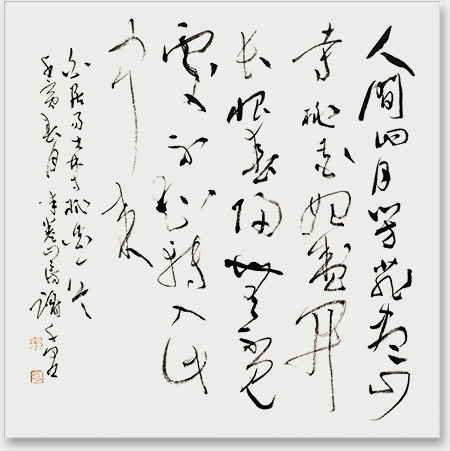 人間四月芳菲盡山
寺桃花始盛開
長恨春歸無覓
處不知轉入此
中來
白居易大林寺桃花
春月